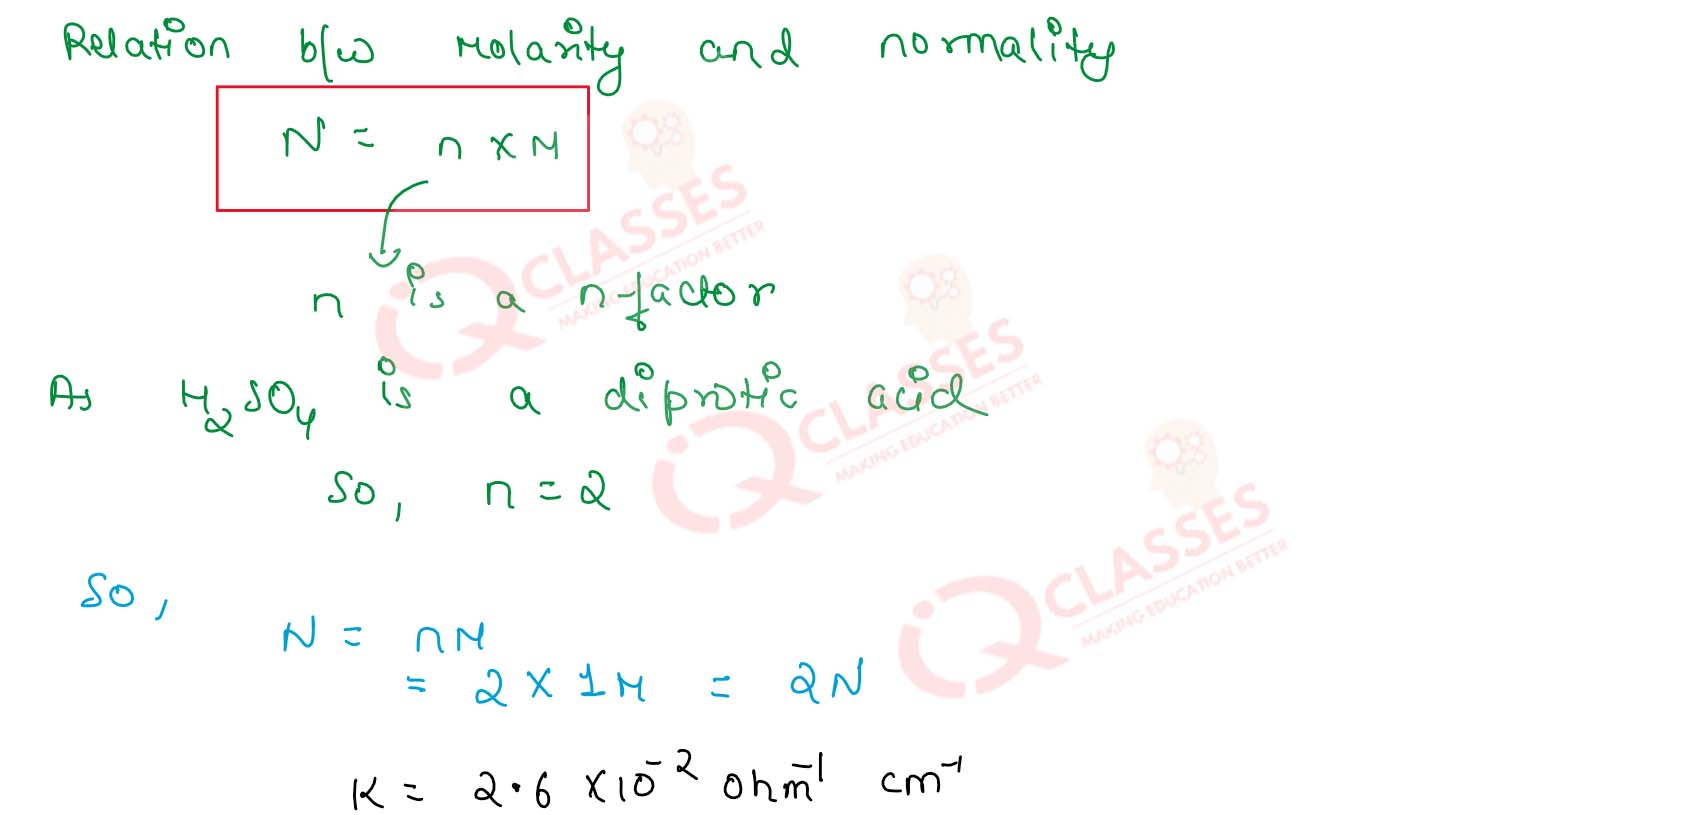 Relation b/w Molarity and normality
N = n × M
n is a n-factor
As H₂SO₄ is a diprotic acid
So, n = 2
So,
N = nM
= 2 × 1M = 2N
K = 2.6 × 10⁻² ohm⁻¹ cm⁻¹
IQ CLASSES
MAKING EDUCATION BETTER
IQ CLASSES
MAKING EDUCATION BETTER
IQ CLASSES
MAKING EDUCATION BETTER